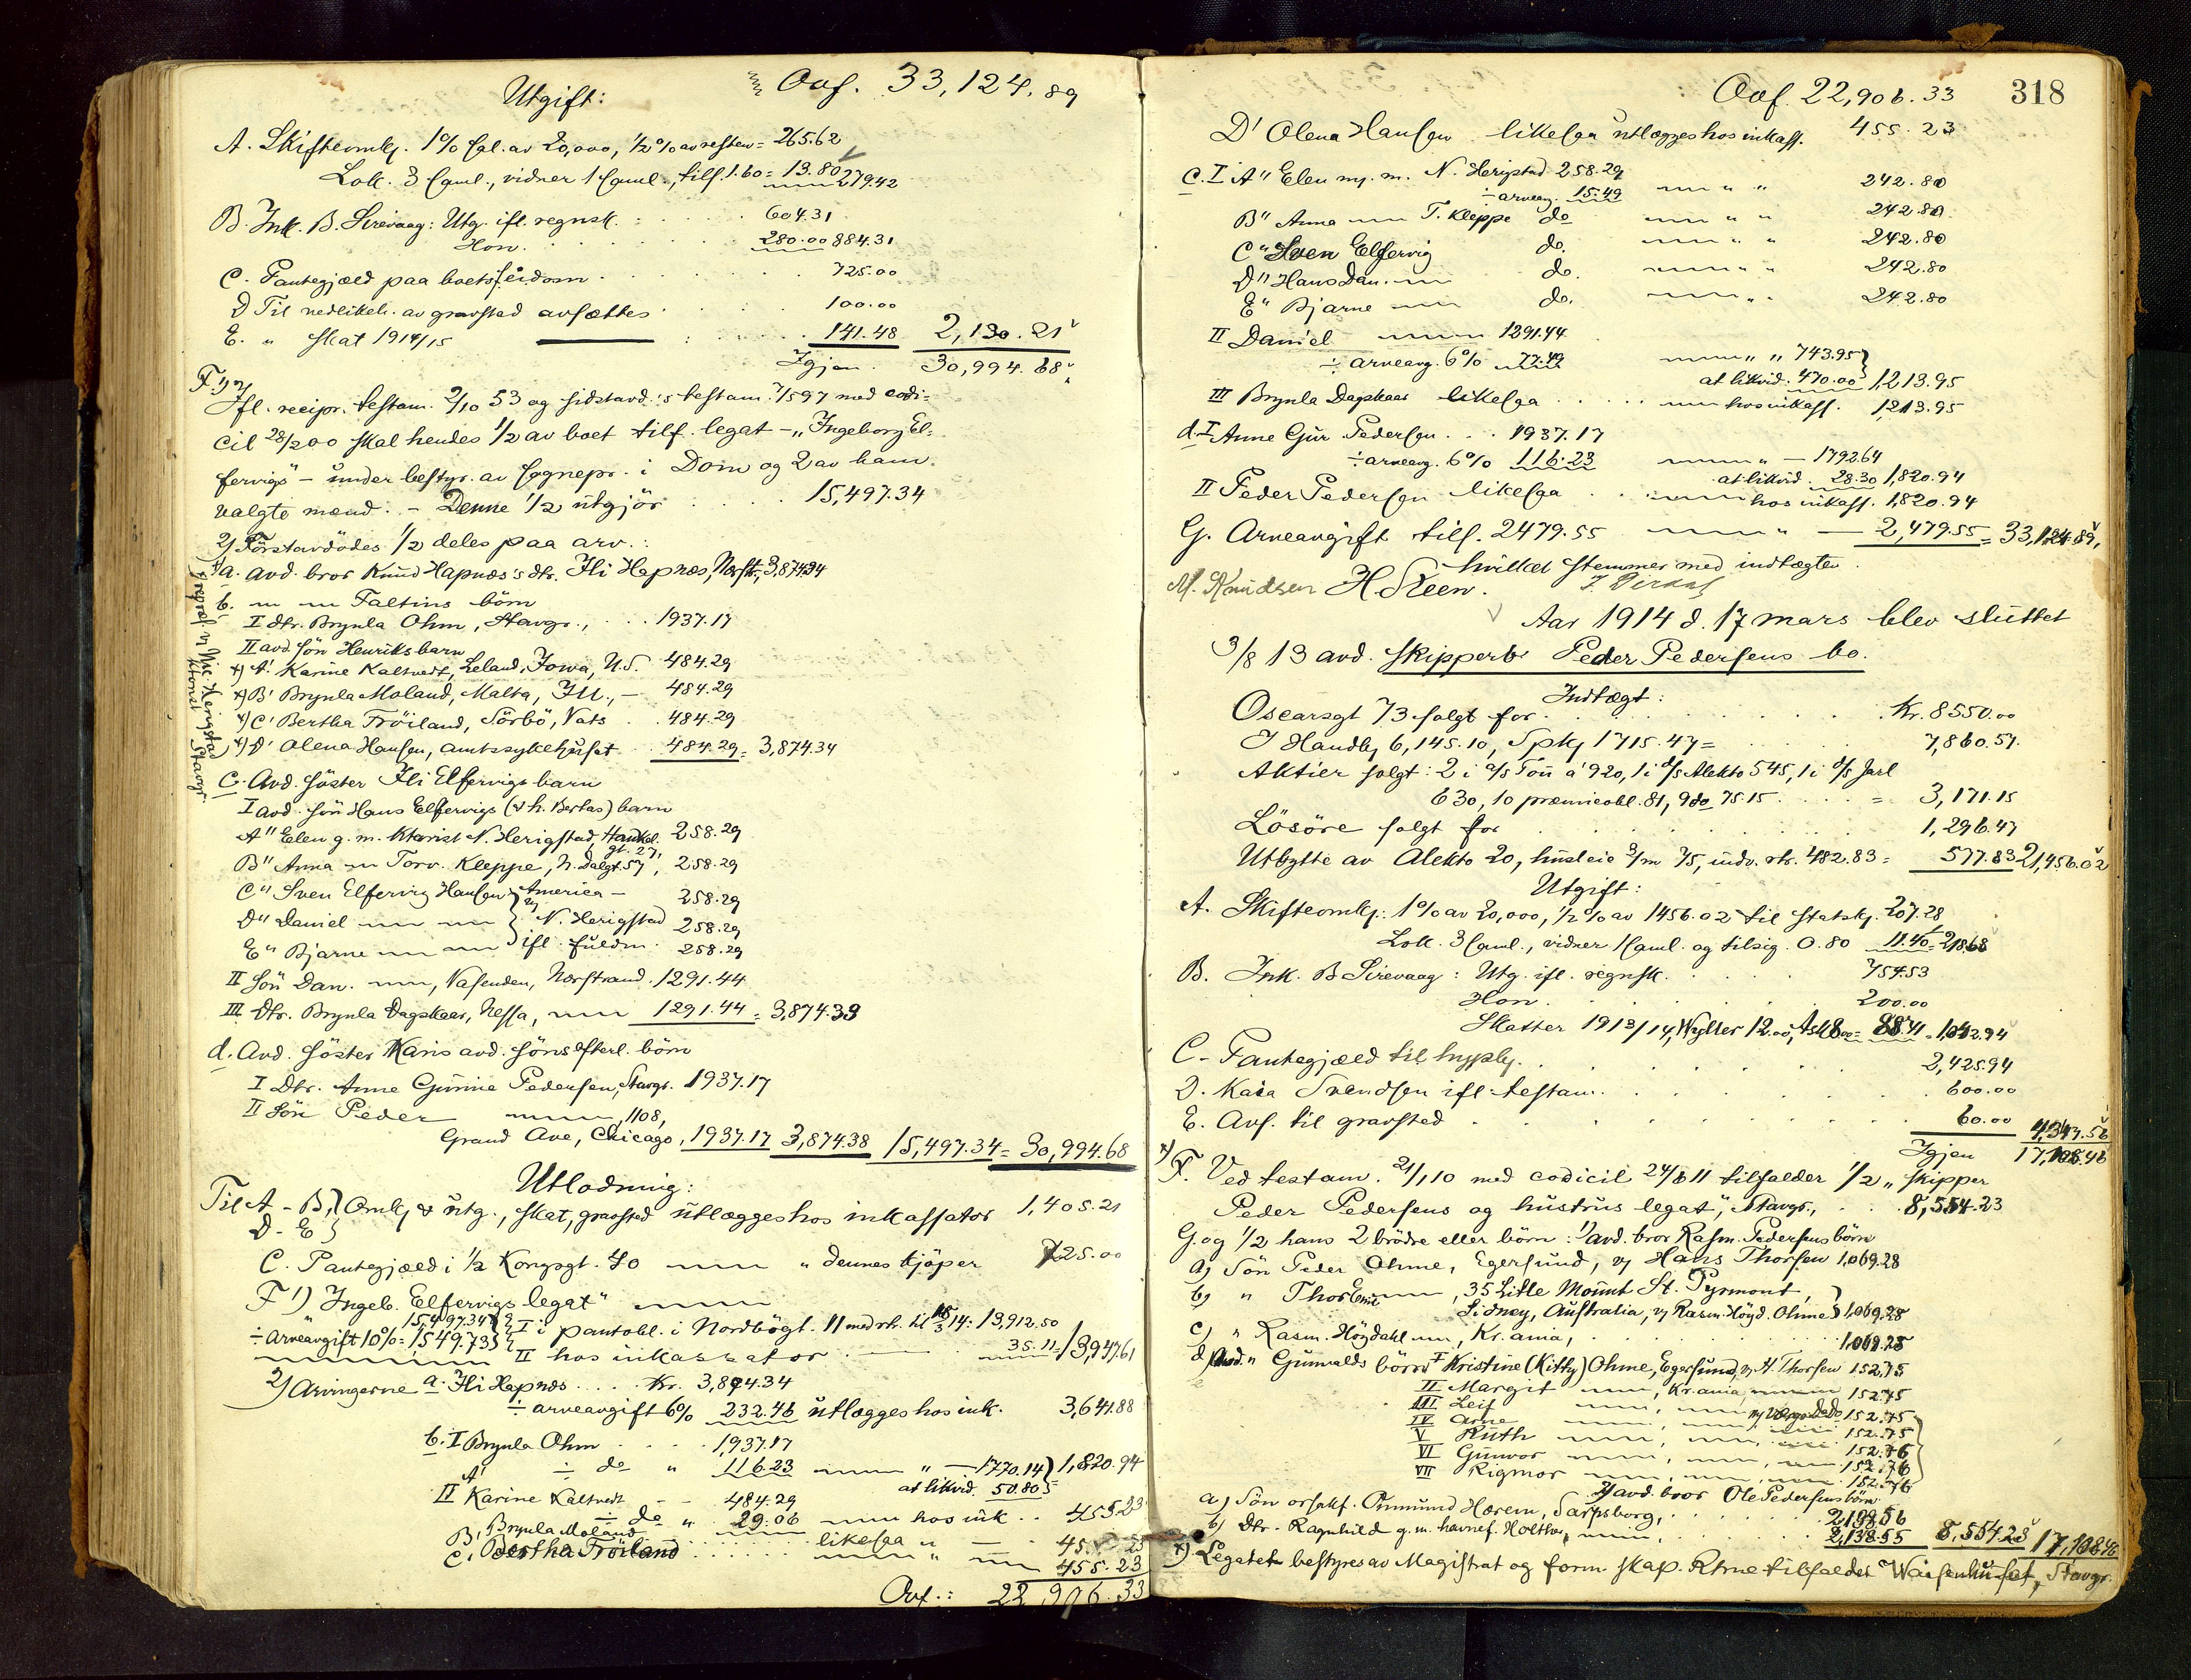 Utgift:
Ovf. 33,124.89
A. Skifteomk. 1% sal. av 20,000, 1/2% av resten = 265.62
Lok. 3 saml., vidner 1 saml., tils. 1.60 = 13.80 279.42
B. Ink. B. Sirevaag: Utg. ifl. regnsk. : 604.31
Hon. 280.00 884.31
C. Pantegjæld paa boets eidom 725.00
D Til vedlikeh. av gravsted avsættes 100.00
E. " Skat 1914/15 141.48 2,130.21
Igjen. 30,994.68
F. 1)
Ifl. recipr. testam. 2/10 53 og sidstavd.'s testam. 7/5 97 med codi=
cil 28/2 00 skal hendes 1/2 av boet tilf. legat - "Ingeborg El=
fervigs" - under bestyr. av sognepr. i Dom og 2 av ham
valgte mænd. - Denne 1/2 utgjör 15,497.34
2) Förstavdödes 1/2 deles paa arv.:
a. avd. bror Knud Hapnæs's dtr. Ili Hapnæs, Nærstr., 3,874.34
b. " " Faltins börn
I dtr. Brynla Ohm, Stavgr., 1937.17
II avd. sön Henriks barn
x) A' Karine Kaltvedt, Leland, Iowa, U.S. 484.29
x) B' Brynla Moland, Malta, Ill., - 484.29
x) C' Bertha Fröiland, Sörbö, Vats 484.29
x) D' Olena Hansen, amtssykehuset 484.29 = 3,874.34
x) repræs. v. N. Herigstad Stavgr.
C. Avd. söster Ili Elfervigs barn
I avd. sön Hans Elfervigs (& h. Bertas) barn
A" Elen g. m. ktorist N. Herigstad, Haukel. gt. 27, 258.29
B" Anna " Torv. Kleppe, N. Dalgt. 57, 258.29
C" Sven Elfervig Hansen America - 258.29
D" Daniel " " v. N. Herigstad 258.29
E" Bjarne " " ifl. fuldm. 258.29
II Sön Dan. ", Vasenden, Nærstrand. 1291.44
III Dtr. Brynla Dagskaar, Nessa, " 1291.44 = 3,874.33
d. Avd. söster Karis avd. söns efterl. börn
I Dtr. Anne Gurine Pedersen, Stavgr. 1937.17
II Sön Peder ", 1108,
Grand Ave, Chicago, 1937.17 3,874.38 15,497.34 = 30,994.68
Utlodning:
Til A - B, Omk. & utg., skat, gravsted utlægges hos inkassator 1,405.21
D - E
C. Pantegjæld i 1/2 Kongsgt. 40 " " dennes kjöper 725.00
F 1) "Ingeb. Elfervigs legat"
15,497.34 I i pantobl. i Nordbögt. 11 med rt. til 14: 13,912.50
÷ Arveavgift 10% = 1,549.73 II hos inkassator 35.11 = 13,947.61
2) Arvingerne a. Ili Hapnæs Kr. 3,874.34
÷ arveavgift 6% 232.46 utlægges hos ink. 3,641.88
b. I Brynla Ohm 1,937.17
÷ do " 116.23 " 1770.14 1,820.94
at likvid. 50.80
II A' Karine Kaltvedt - - 484.29
÷ do " 29.06 " hos ink 455.23
B' Brynla Moland likesaa " 455.23
C' Bertha Fröiland " " 455.23
Ovf.: 22,906.33
Ovf. 22,906.33 318
D' Olena Hansen likesaa utlægges hos inkass. 455.23
C. I A" Elen ny. m. N. Herigstad 258.29
÷ arveavg. 15.49 " " 242.80
B" Anna " T. Kleppe do " " 242.80
C" Sven Elfervig do. " " 242.80
D" Hans Dan. " do. " " 242.80
E" Bjarne " do. " " 242.80
II Daniel " 1291.44
÷ arveavg. 6% 77.49 " " 743.95
at likvid. 470.00 1,213.95
III Brynla Dagskaar likesaa " hos inkass. 1213.95
d. I Anne Gur. Pedersen 1937.17
÷ arveavg. 6% 116.23 " - 1792.64
at likvid. 28.30 1,820.94
II Peder Pedersen likesaa " hos inkass. 1,820.94
G. Arveavgift tils. 2479.55 " - 2,479.55 = 33,124.89,
hvilket stemmer med indtægten.
M. Knudsen H. Steen.
Aar 1914 d. 17 mars blev sluttet
3/8 13 avd. skipperb. Peder Pedersens bo.
Indtægt:
Oscarsgt 73 solgt for Kr. 8550.00
I Handbk 6,145.10, Spk 1715.47 = 7,860.57.
Aktier solgt: 2 i a/s Tou á 920, 1 i d/s Alekto 545, 1 i d/s Jarl
630, 10 præmieobl. 81, 9 do 75.15 = 3,171.15
Lösöre solgt for 1,296.47
Utbytte av Alekto 20, husleie 3/m 75, indv. rtr. 482.83 = 577.83 21,456.02
Utgift:
A. Skifteomk.: 1% av 20,000, 1/2% av 1456.02 til statsk. 207.28
Lok. 3 saml., vidner 1 saml. og tilsig. 0.80 11.40 = 218.68
B. Ink. B Sirevaag: Utg. ifl. regnsk. 754.53
Hon. 200.00
Skatter 1913/14, Wyller 12.00, Ask 8.00 = 88.41 = 1,042.94
C - Pantegjæld til hypbk. 2,425.94
D. Kaia Svendsen ifl. testam. 600.00
E. Avs. til gravsted 60.00 4,347.56
Igjen 17,108.46
x) F. Ved testam. 21/1 10 med codicil 24/8 11 tilfalder 1/2 "skipper
Peder Pedersens og hustrus legat", Stavgr., 8,554.23
G og 1/2 hans 2 brödre eller börn: 1) avd. bror Rasm. Pedersens börn
a) Sön Peder Ohme, Egersund, v. Hans Thorsen 1,069.28
b) " Thor Emil ", 35 Little Mount St. Pyrmont,
Sidney, Australia, v. Rasm. Höyd. Ohme 1,069.28
c) " Rasm. Höydahl ", Kr.ania, 1,069.28
d) Avd. " Gunvalds börn I Kristine (Kitty) Ohme, Egersund, v. H. Thorsen 152.75
II Margit ", Kr.ania, " 152.75
III Leif ", " 152.75
IV Arne ", " 152.75
V Ruth ", ", " 152.76
VI Gunvor ", ", " 152.76
VII Rigmor ", ", " 152.76
2) avd. bror Ole Pedersens börn
a) Sön orsakf. Ommund Hærem, Sarpsborg, 2,138.56
b) Dtr. Ragnhild g. m. havnef. Holthe, " 2,138.55 8,554.23 17,108.46
x) Legatet bestyres av Magistrat og formskap. Rtne tilfalder Waisenhuset, Stavgr.